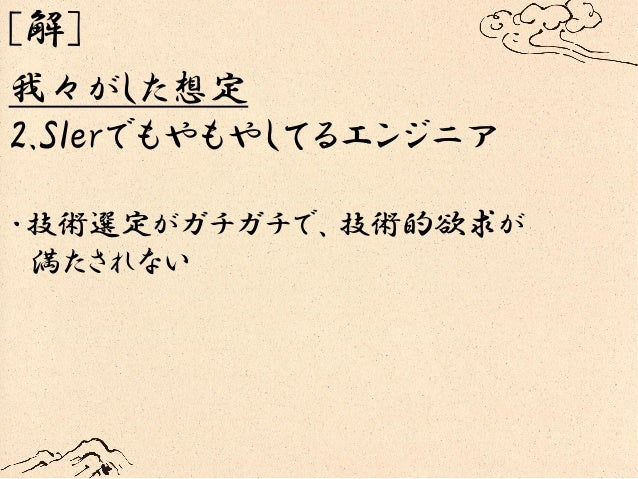 [解]
我々がした想定
2.SIerでもやもやしてるエンジニア
・技術選定がガチガチで、技術的欲求が
満たされない